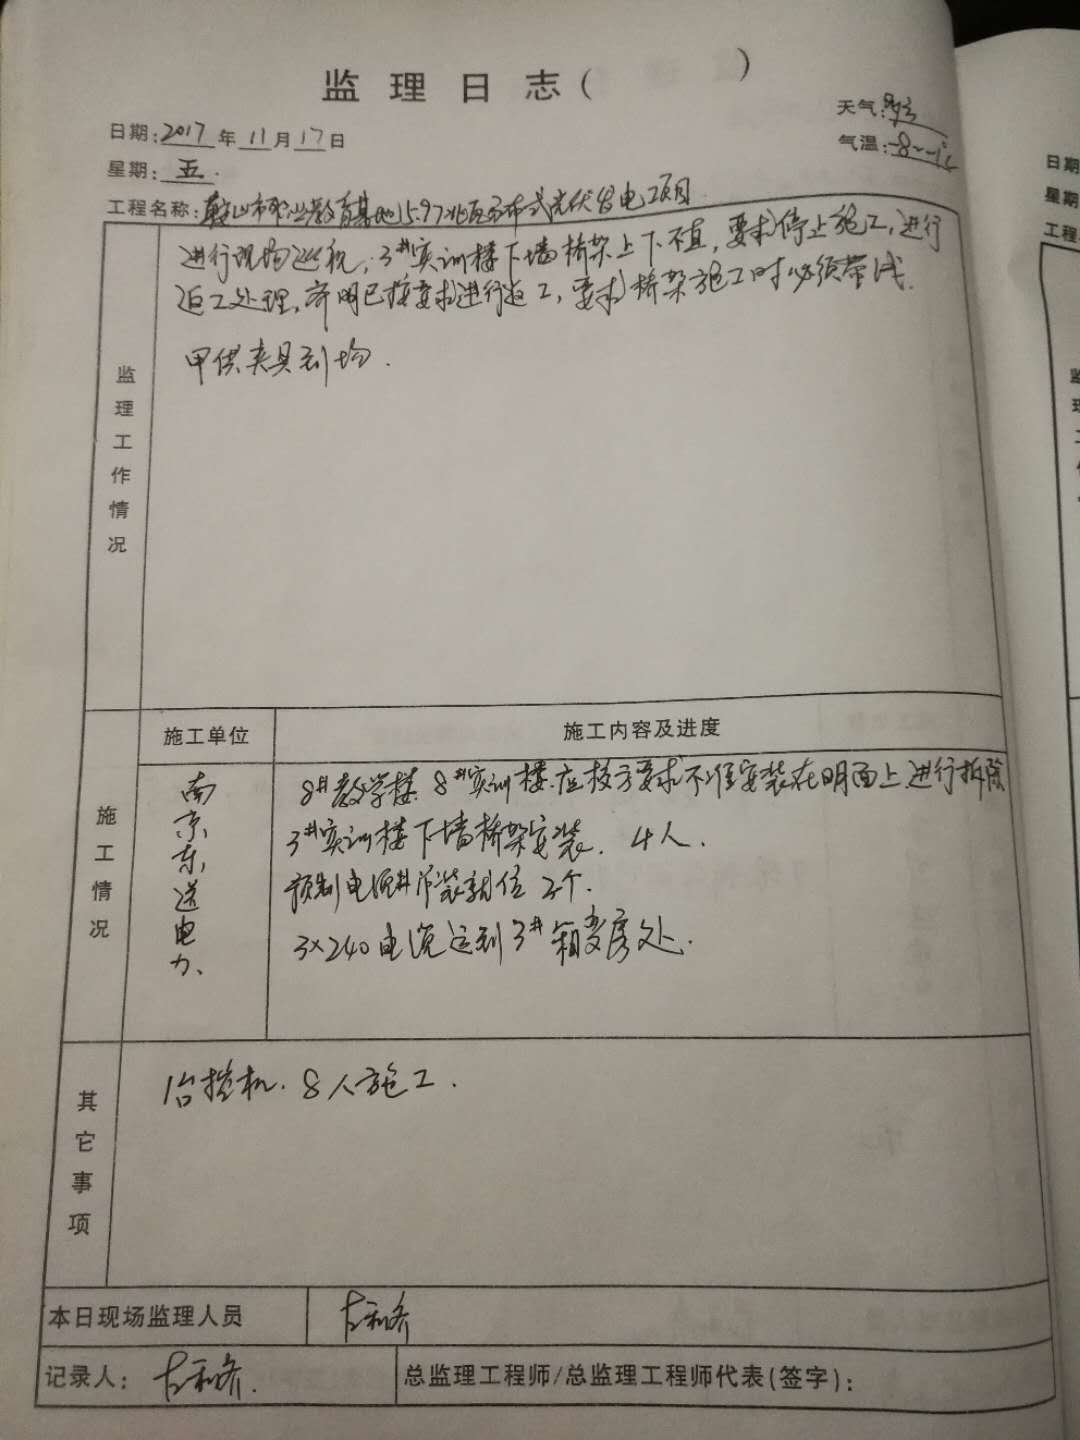 监理日志( )
日期:2017年11月17日
天气:
气温:-8~-1℃
星期:五.
工程名称:鞍山市职业教育基地15.97兆瓦分布式光伏发电工项目.
监理工作情况
进行现场巡视,3#实训楼下墙桥架上下不直,要求停止施工,进行
返工处理,齐明已按要求进行返工,要求桥架施工时必须带线.
甲供夹具到场.
施工情况
施工单位
施工内容及进度
南京东送电力、
8#教学楼.8#实训楼.应校方要求不准安装在明面上.进行拆除
3#实训楼下墙桥架安装. 4人.
预制电缆井吊装就位2个.
3×240电缆运到3#箱变房处.
其它事项
1台挖机. 8人施工.
本日现场监理人员
记录人:
总监理工程师/总监理工程师代表(签字):
日期
星期
工程